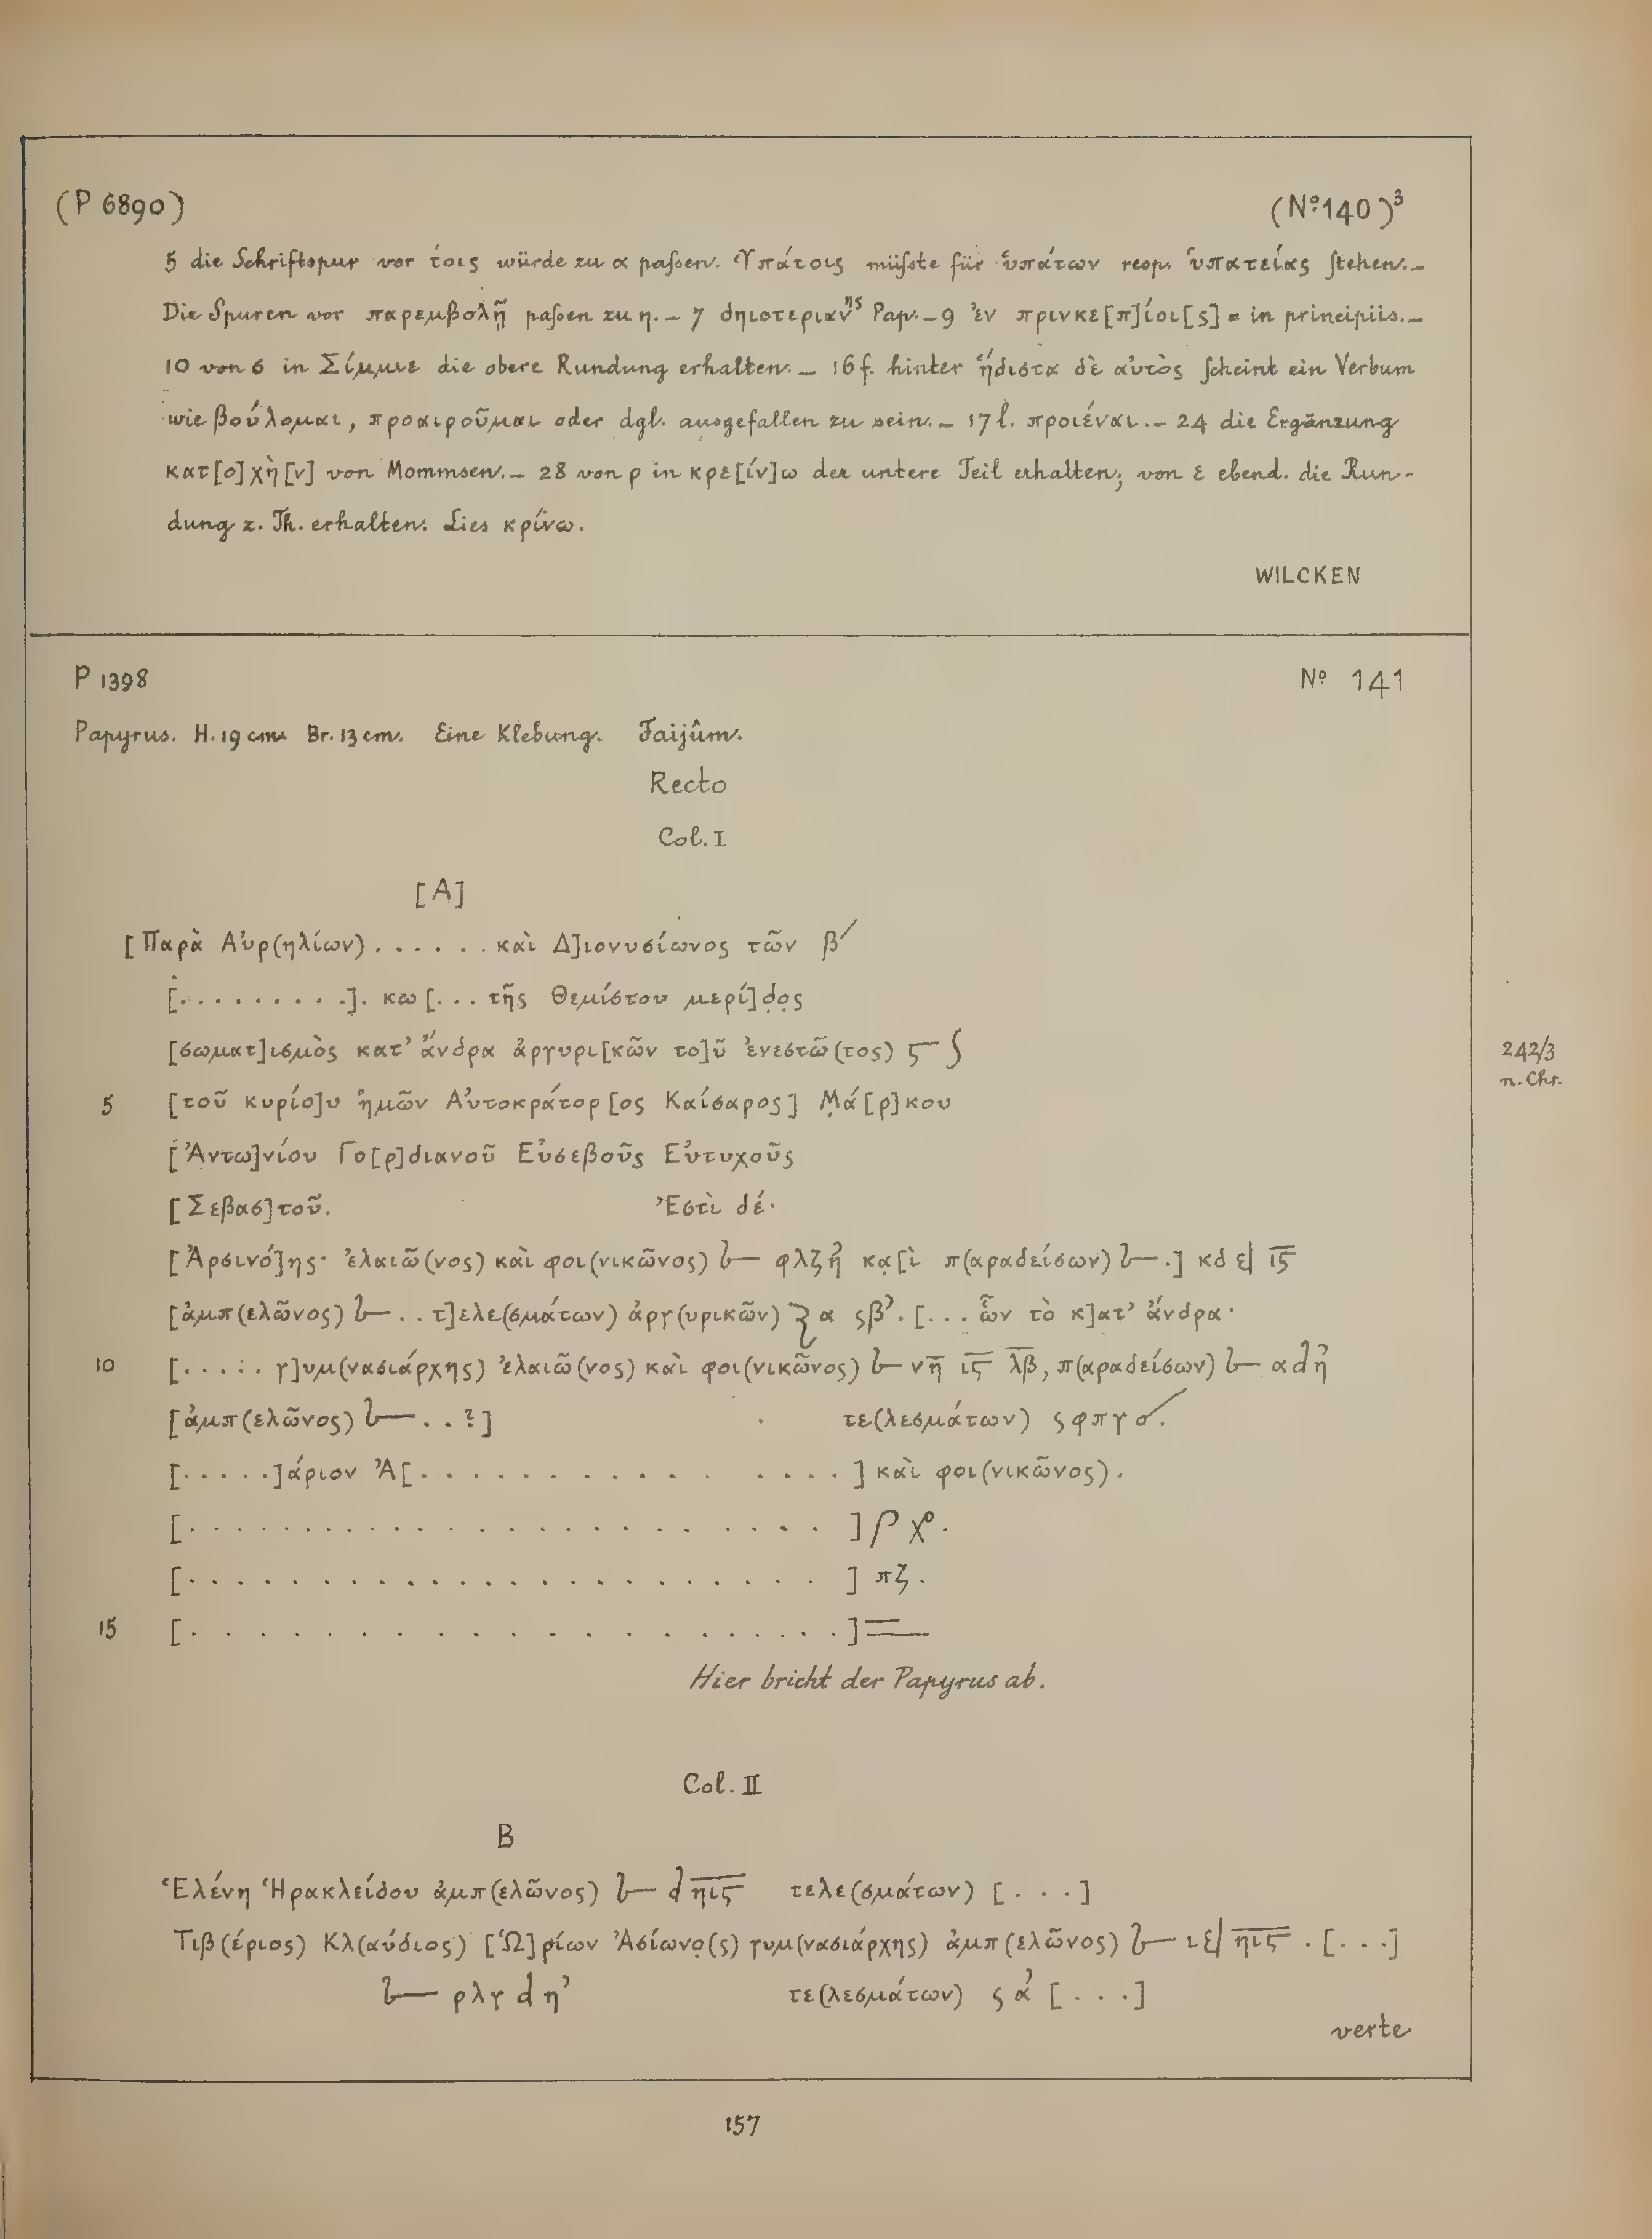 (P 6890) (Nº 140)³
5 die Schriftspur vor τοις würde zu α paſsen. Ὑπάτοις müſste für ὑπάτων resp. ὑπατείας ſtehen. –
Die Spuren vor παρεμβολῇ paſsen zu η. – 7 δηιοτεριανης Pap. – 9 ἐν πρινκε[π]ίοι[ς] = in principiis. –
10 von σ in Σίμμιε die obere Rundung erhalten. – 16 f. hinter ἥδιστα δὲ αὐτὸς ſcheint ein Verbum
wie βούλομαι, προαιροῦμαι oder dgl. ausgefallen zu sein. – 17 l. προιέναι. – 24 die Ergänzung
κατ[ο]χὴ[ν] von Mommsen. – 28 von ρ in κρε[ίν]ω der untere Teil erhalten; von ε ebend. die Run-
dung z. Th. erhalten. Lies κρίνω.
WILCKEN
P 1398 Nº 141
Papyrus. H. 19 cm. Br. 13 cm. Eine Klebung. Faijûm.
Recto
Col. I
[A]
[Παρὰ Αὐρ(ηλίων) . . . . . . καὶ Δ]ιονυσίωνος τῶν β´
[. . . . . . . . . .]. κω[. . . τῆς Θεμίστου μερί]δ̣ο̣ς
[σωματ]ισμὸς κατ’ ἄνδρα ἀργυρι[κῶν το]ῦ ἐνεστῶ(τος) ϛ ∫ 242/3 n. Chr.
5 [τοῦ κυρίο]υ ἡμῶν Αὐτοκράτορ[ος Καίσαρος] Μ̣ά[ρ]κου
[Ἀντω]νίου Γο[ρ]διανοῦ Εὐσεβοῦς Εὐτυχοῦς
[Σεβασ]τοῦ. Ἐστὶ δέ·
[Ἀρσινό]ης· ἐλαιῶ(νος) καὶ φοι(νικῶνος) 𐆁 φλζ ἠ κα̣[ὶ π(αραδείσων) 𐆁 .] κδ ε| ι̅ϛ̅
[ἀμπ(ελῶνος) 𐆁 . . τ]ελε(σμάτων) ἀργ(υρικῶν) α ϛβ’. [. . . ὧν τὸ κ]ατ’ ἄνδρα·
10 [. . . . . γ]υμ(νασιάρχης) ἐλαιῶ(νος) καὶ φοι(νικῶνος) 𐆁 νη̅ ι̅ϛ̅ λ̅β̅, π(αραδείσων) 𐆁 α d ἠ
[ἀμπ(ελῶνος) 𐆁 . . ?] τε(λεσμάτων) ϛφπγ σ.
[. . . . .]άριον Ἀ[. . . . . . . . . . . . . . .] καὶ φοι(νικῶνος).
[. . . . . . . . . . . . . . . . . . . . . .] ρ χο.
[. . . . . . . . . . . . . . . . . . . . . .] πζ.
15 [. . . . . . . . . . . . . . . . . . . .] =
Hier bricht der Papyrus ab.
Col. II
B
Ἑλένη Ἡρακλείδου ἀμπ(ελῶνος) 𐆁 d η̅ι̅ϛ̅ τελε(σμάτων) [. . .]
Τιβ(έριος) Κλ(αύδιος) [Ὡ]ρίων Ἀσίωνο̣(ς) γυμ(νασιάρχης) ἀμπ(ελῶνος) 𐆁 ιε| η̅ι̅ϛ̅ . [. . .]
𐆁 ρλγ d η’ τε(λεσμάτων) ϛ ἀ [. . .]
verte
157